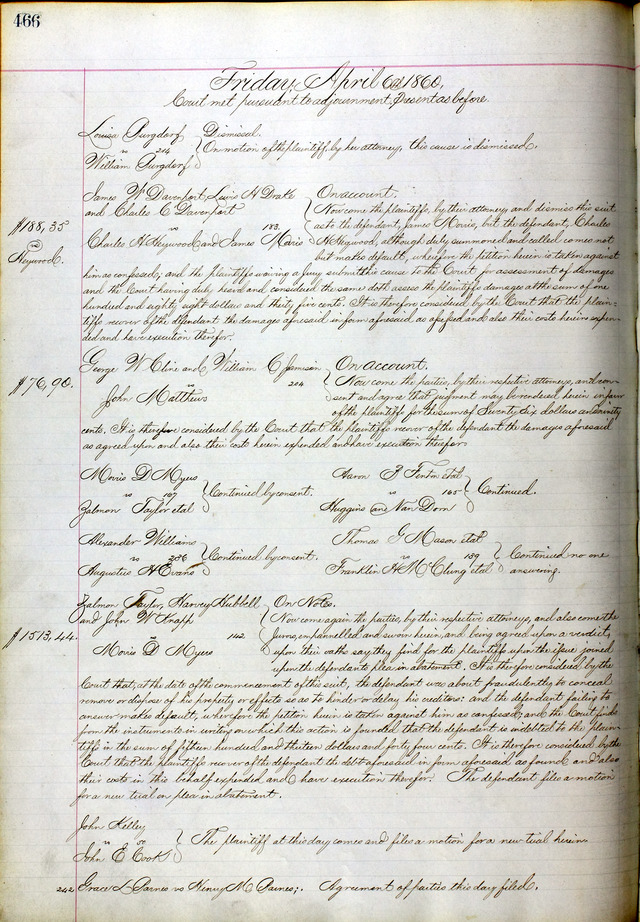 466
Friday, April 6th 1860,
Court met pursuant to adjournment, Present as before.
Louisa Burgdorf Dismissal.
vs 214 On motion of the plaintiff, by her attorney, this cause is dismissed.
William Burgdorf
James W Davenport, Lewis H Drake On account.
and Charles C Davenport Now come the plaintiffs, by their attorney and dismiss this suit
$188,35 vs 183 as to the defendant, James Moris, but the defendant, Charles
vs Heywood. Charles H Heywood and James Moris H Heywood, although duly summoned and called comes not
but makes default, wherefore the petition herein is taken against
him as confessed; and the plaintiffs waiving a jury submit this cause to the Court for assessment of damages
and the Court having duly heard and considered the same doth assess the plaintiffs damages at the sum of one
hundred and eighty eight dollars and thirty five cents. It is therefore considered by the Court that the plain-
tiffs recover of the defendant the damages aforesaid in form aforesaid as assessed and also their costs herein expen-
ded and have execution therefor.
George W Cline and William C Jamison On account.
$76,90. vs 204 Now come the parties, by their respective attorneys, and con-
John Matthews sent and agree that judgment may be rendered herein in favor
of the plaintiff for the sum of Seventy six dollars and ninety
cents. It is therefore considered by the Court that the plaintiffs recover of the defendant the damages aforesaid
as agreed upon and also their costs herein expended and have execution therefor.
Moris D Myers Aaron B Fenton etal
vs 107 Continued by consent. vs 165 Continued.
Zalmon Taylor etal Huggins Van Dorn
Alexander Williams Thomas G Mason etal
vs 286 Continued by consent. vs 189 Continued no one
Augustus H Evans Franklin H McClung etal answering.
Zalmon Taylor, Harvey Hubbell On Notes.
and John W Knapp Now come again the parties, by their respective attorneys, and also come the
$1513,44. vs 142 Jurors, empannelled and sworn herein, and being agreed upon a verdict,
Moris D Myers upon their oaths say they find for the plaintiffs upon the issue joined
upon the defendants plea in abatement. It is therefore considered by the
Court that, at the date of the commencement of this suit, the defendant was about fraudulently to conceal
remove or dispose of his property or effects so as to hinder or delay his creditors: and the defendant failing to
answer makes default, wherefore the petition herein is taken against him as confessed, and the Court finds
from the instruments in writing on which this action is founded that the defendant is indebted to the plain-
tiffs in the sum of fifteen hundred and thirteen dollars and forty four cents. It is therefore considered by the
Court that the plaintiffs recover of the defendant the debt aforesaid in form aforesaid as found and also
their costs in this behalf expended and have execution therefor. The defendant files a motion
for a new trial on plea in abatement.
John Kelley
vs 50 The plaintiff at this day comes and files a motion for a new trial herein.
John E Cook
242 Grace L Barnes vs Henry M Barnes;. Agreement of parties this day filed.